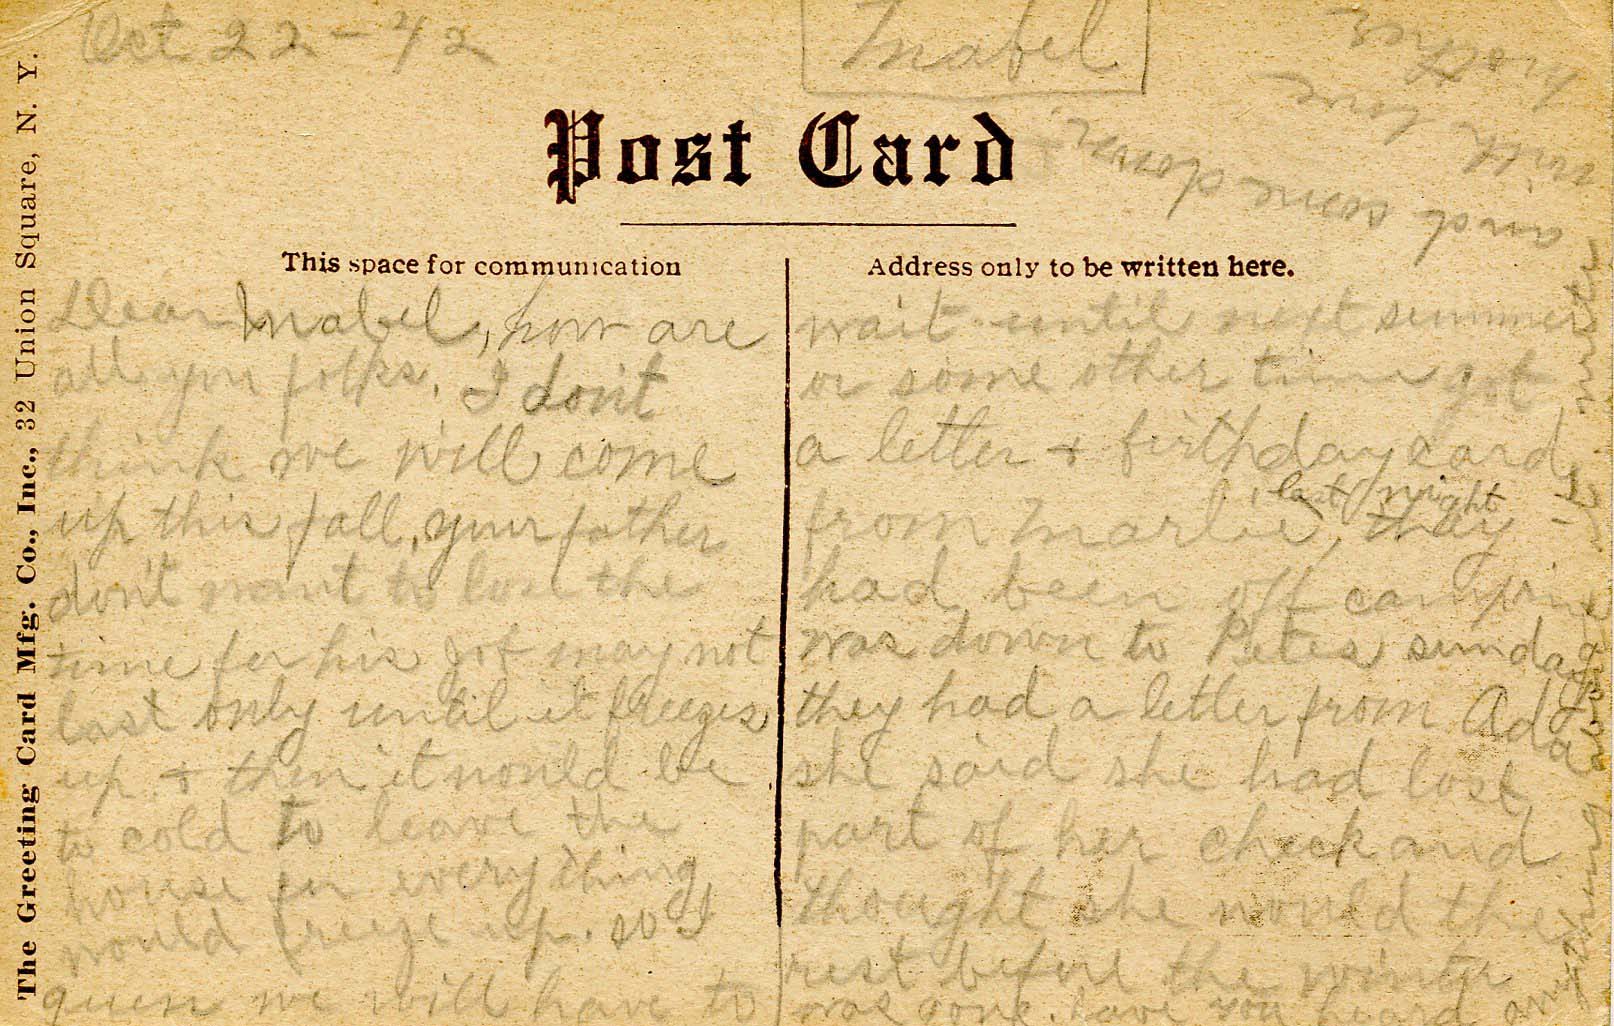 Oct 22-42
Mabel
Post Card
This space for communication
Address only to be written here.
The Greeting Card Mfg. Co., Inc., 32 Union Square, N. Y.
Dear Mabel, how are
all you folks. I don't
think we will come
up this fall, your father
don't want to lose the
time for his job may not
last only until it freezes
up + then it would be
to cold to leave the
house for everything
would freeze up. so I
guess we will have to
wait until next summer
or some other time got
a letter + birthday card
from Marlie, last night they
had been off camping
was down to Petes sunday
they had a letter from Ada
she said she had lost
part of her check and
thought she would the
rest before the winter
was gone. have you heard
anything about
winter
and some
with love
Mother